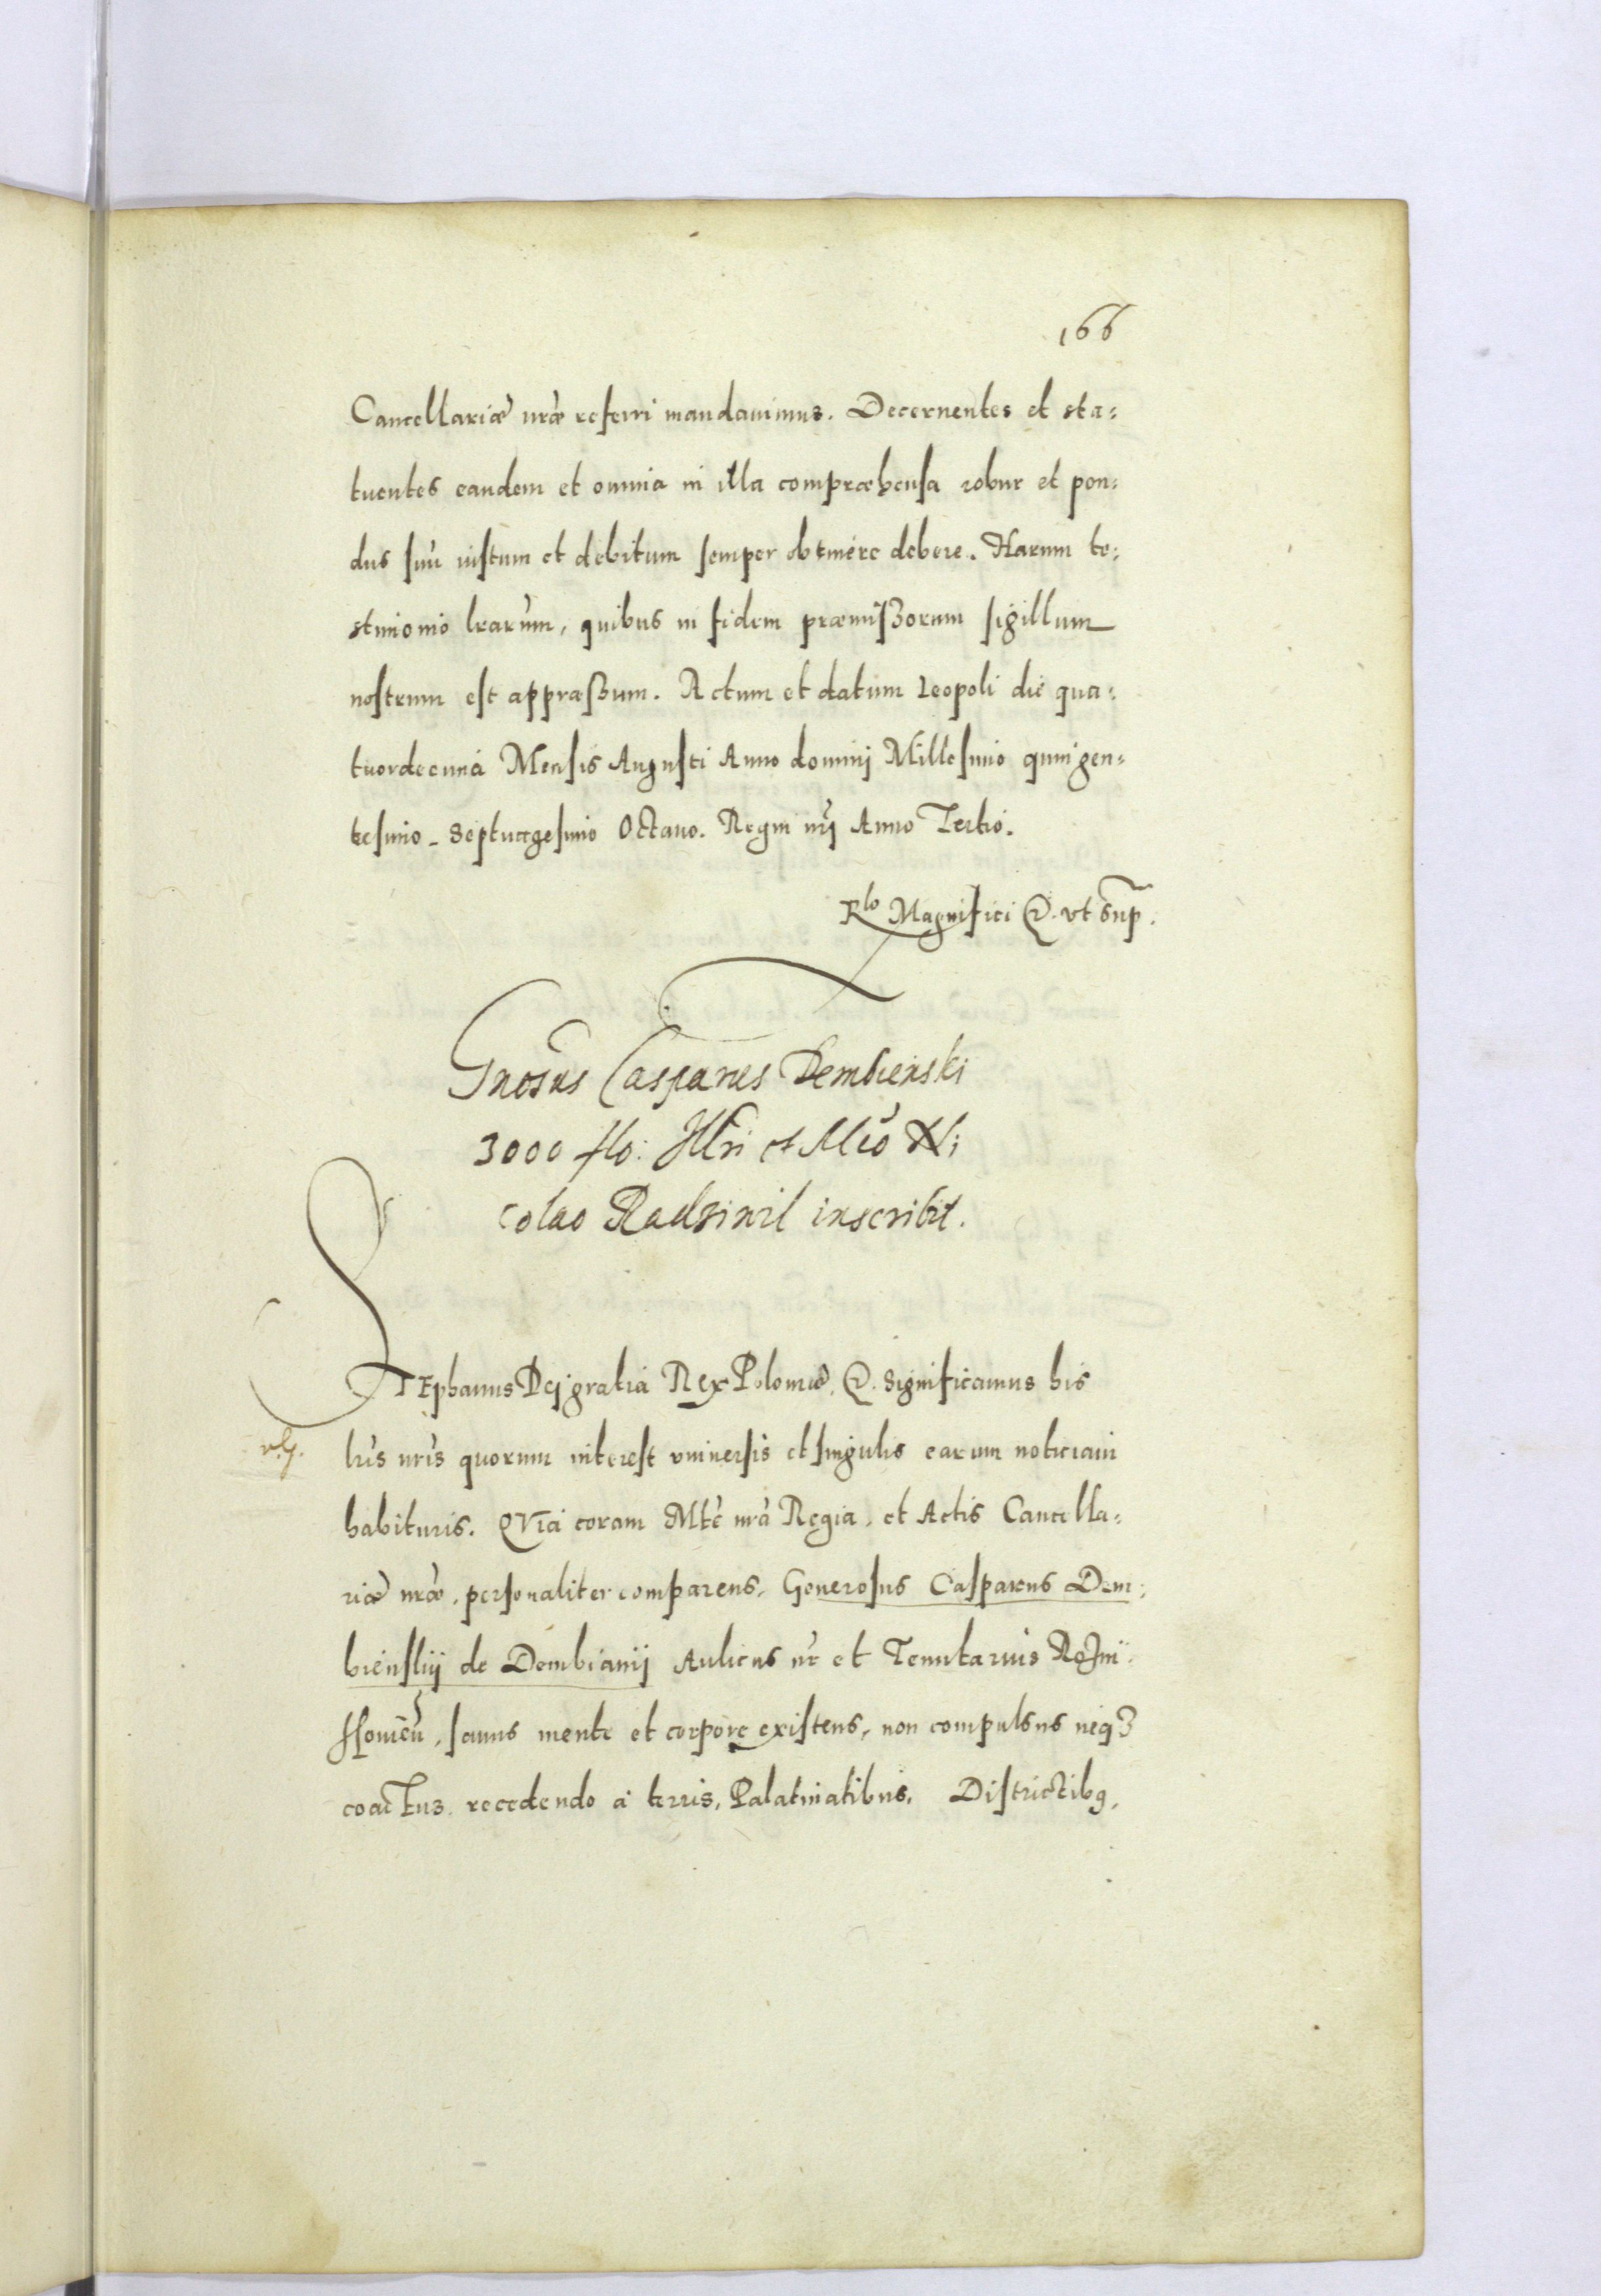 166
Cancellariæ nræ referri mandauimus. Decernentes et sta-
tuentes eandem et omnia in illa compræhensa robur et pon-
dus suũ iustum et debitum semper obtinere debere. Harum te-
stimonio lrarum, quibus in fidem præmißorum sigillum
nostrum est appræßum. Actum et datum Leopoli die qua-
tuordecima Mensis Augusti Anno dominj Millesimo quingen-
tesimo Septuagesimo Octauo. Regni nrj Anno Tertio.
Rlo Magnifici &. vt sup.
Gnosus Casparus Dembienski
3000 flo: Illri et Mco Ni
colao Radziwil inscribit.
STEphanus Dej gratia Rex Poloniæ, &. Significamus his
lris nris quorum interest vniuersis et singulis earum noticiam
habituris. QVia coram Mte nra Regia, et Actis Cancella-
riæ nræ, personaliter comparens, Generosus Casparus Dem-
bienskij de Dembianij Aulicus nr et Tenutarius
sanus mente et corpore existens, non compulsus neqꝫ
coactus, recedendo à terris, Palatinatibus, Districtibꝰ,